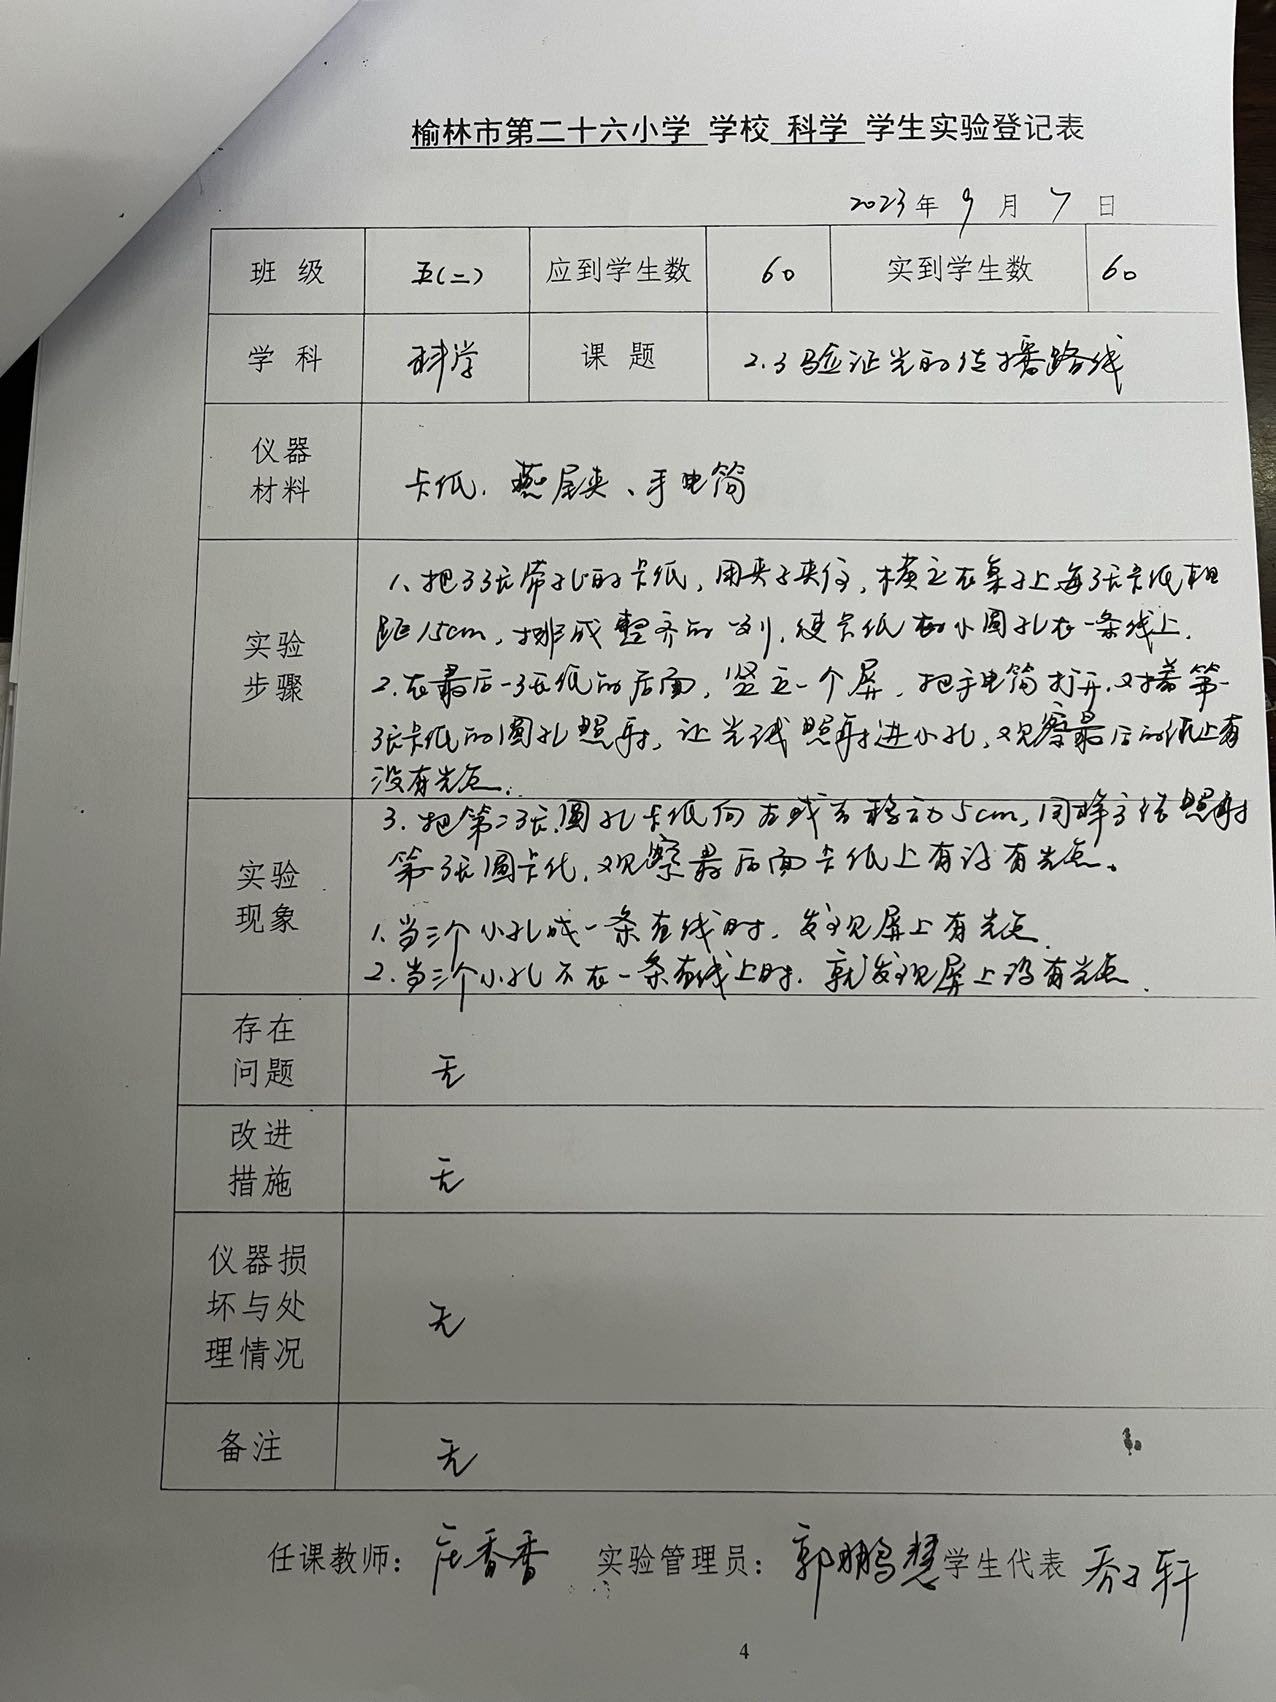 榆林市第二十六小学 学校 科学 学生实验登记表
2023年 9 月 7 日
班 级 五(二) 应到学生数 60 实到学生数 60
学 科 科学 课 题 2.3验证光的传播路线
仪器
材料
卡纸、燕尾夹、手电筒
实验
步骤
1、把3张带孔的卡纸,用夹子夹住,横立在桌子上每张卡纸相
距15cm,排成整齐的一列,使卡纸的小圆孔在一条线上.
2.在最后一张纸的后面,竖立一个屏,把手电筒打开,对着第一
张卡纸的圆孔照射,让光线照射进小孔,观察最后的纸上有
没有光点.
实验
现象
3.把第2张圆孔卡纸向左或右移动5cm,同样方法照射
第一张圆卡纸,观察最后面卡纸上有没有光点。
1.当三个小孔成一条直线时,发现屏上有光点.
2.当三个小孔不在一条直线上时,就发现屏上没有光点.
存在
问题
无
改进
措施
无
仪器损
坏与处
理情况
无
备注 无
任课教师: 庄香香 实验管理员: 郭鹏慧 学生代表 乔子轩
4